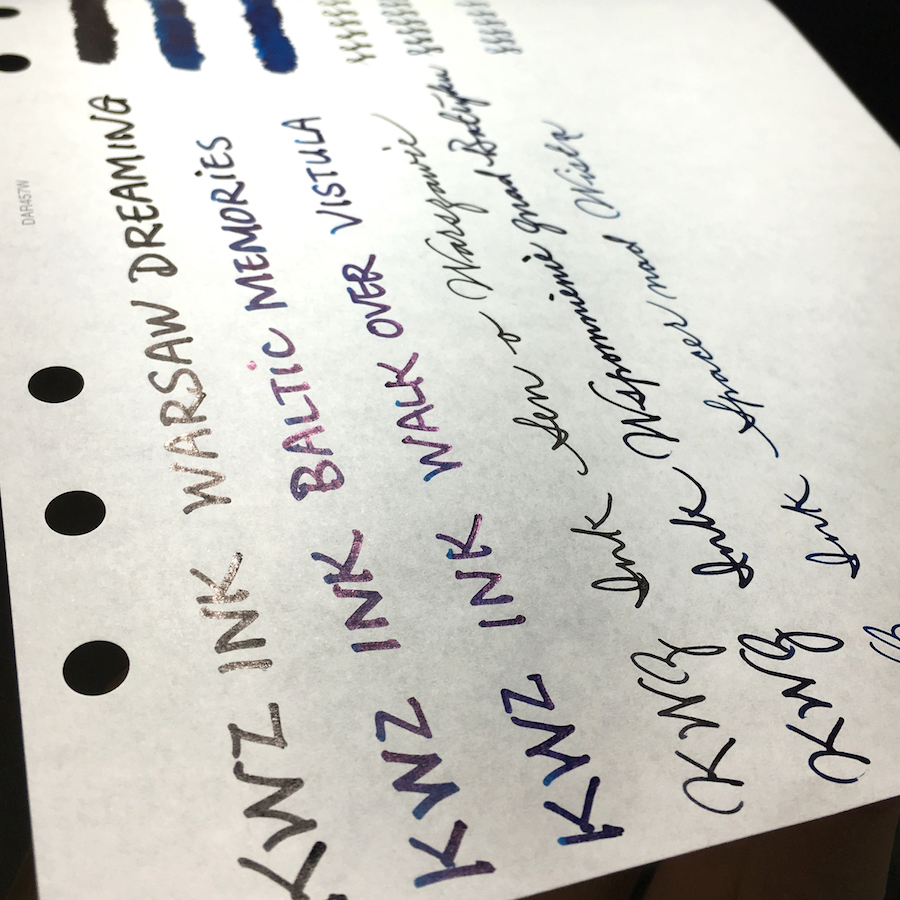 DAR457W
KWZ INK WARSAW DREAMING
KWZ INK BALTIC MEMORIES
KWZ INK WALK OVER VISTULA
KWZ Ink Sen o Warszawie
KWZ Ink Wspomnienie znad Bałtyku
Ink Spacer nad Wisłą